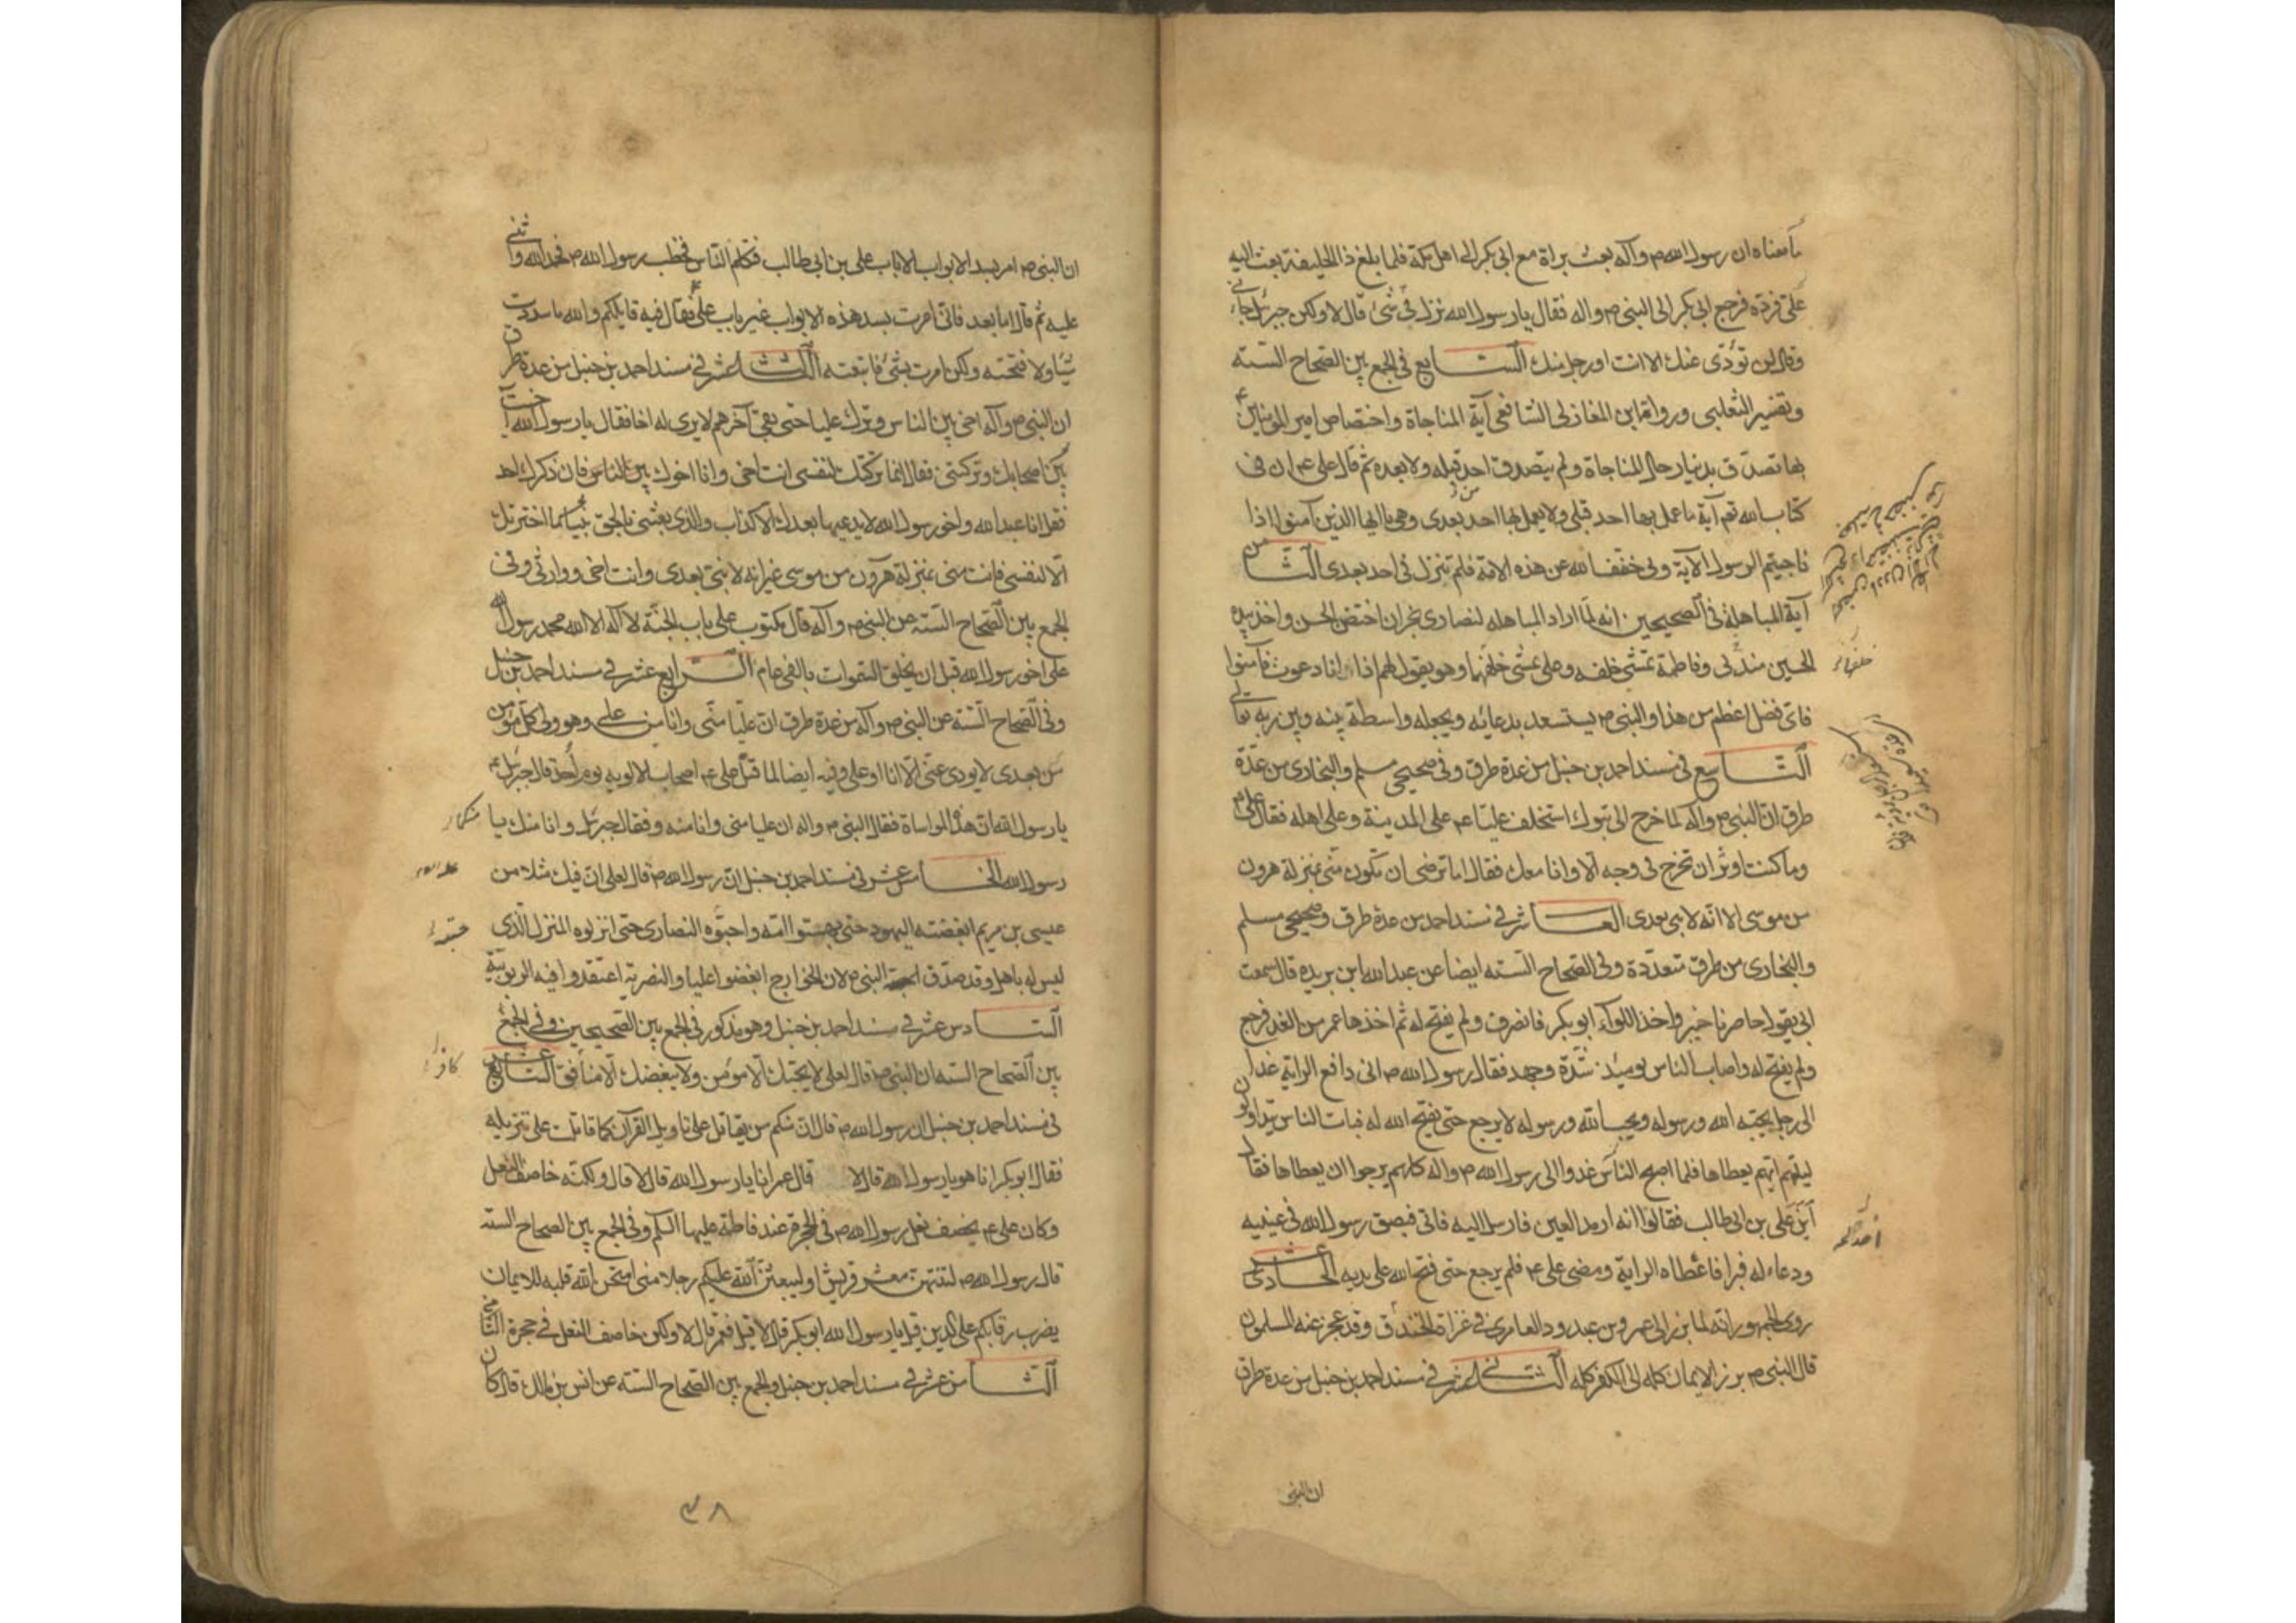 ما معناه ان رسول الله ص وآله بعث براة مع ابى بكر الى اهل مكة فلما بلغ ذا الحليفة بعث اليه
على فرده فرجع ابى بكر الى النبى ص واله فقال يا رسول الله نزل فىّ شئ قال لا ولكن جبرئيل جاءنى
وقال لن تؤدى عنك الا انت او رجل منك السابع فى الجمع بين الصحاح الستة
وتفسير الثعلبى ورواية ابن المغازلى الشافعى آية المناجاة واختصاص امير المؤمنين ع
بها تصدق بدينار حال المناجاة ولم يتصدق احد قبله ولا بعده ثم قال على ع ان فى
كتاب الله تعم آية ما عمل بها احد قبلى ولا يعمل بها احد من بعدى وهى يا ايها الذين آمنوا اذا
ناجيتم الرسول الآية وبى خفف الله عن هذه الامة فلم تنزل فى احد بعدى الثامن
آية المباهلة فى الصحيحين انه لما اراد المباهله لنصارى نجران احتضن الحسن واخذ بيده
الحسين مندلى وفاطمة تمشى خلفه وعلى يمشى خلفهما وهو يقول لهم اذا انا دعوت فآمنوا
فاى فضل اعظم من هذا والنبى ص يستسعد بدعائه ويجعله واسطة بينه وبين ربه تعالى
التاسع فى مسند احمد بن حنبل من عدة طرق وفى صحيحى مسلم والبخارى من عدة
طرق ان النبى ص وآله لما خرج الى تبوك استخلف عليا ع على المدينة وعلى اهله فقال على ع
وما كنت اوثر ان تخرج فى وجه الا وانا معك فقال اما ترضى ان تكون منى بمنزلة هرون
من موسى الا انه لا نبى بعدى العاشر فى مسند احمد من عدة طرق وصحيحى مسلم
والبخارى من طرق متعددة وفى الصحاح الستة ايضا عن عبد الله ابن بريده قال سمعت
ابى يقول حاصرنا خيبر واخذ اللواء ابو بكر فانصرف ولم يفتح له ثم اخذها عمر من الغد فرجع
ولم يفتح له واصاب الناس يومئذ شدة وجهد فقال رسول الله ص انى دافع الراية غدا
الى رجل يحبه الله ورسوله ويحب الله ورسوله لا يرجع حتى يفتح الله له فبات الناس يتداولون
ليلتهم ايهم يعطاها فلما اصبح الناس غدوا الى رسول الله ص واله كلهم يرجوا ان يعطاها فقال
اين على بن ابى طالب فقالوا انه ارمد العين فارسل اليه فاتى فبصق رسول الله فى عينيه
ودعاء له فبرا فاعطاه الراية ومضى على ع فلم يرجع حتى فتح الله على يديه الحادى عشر
روى الجمهور انه لما برز الى عمرو بن عبد ود العامرى فى غزاة الخندق وقد عجز عنه المسلمون
قال النبى ص برز الايمان كله الى الكفر كله الثانى عشر فى مسند احمد بن حنبل من عدة طرق
ان النبى
خلفهما
ان النبى ص امر بسد الابواب الا باب على بن ابى طالب فتكلم الناس فخطب رسول الله ص فحمد الله واثنى
عليه ثم قال اما بعد فانى امرت بسد هذه الابواب غير باب على ع فقال فيه قايلكم والله ما سددت
شيئا ولا فتحته ولكن امرت بشئ فاتبعته الثالث عشر فى مسند احمد بن حنبل من عدة طرق
ان النبى ص وآله اخى بين الناس وترك عليا حتى بقى آخرهم لا يرى له اخا فقال يا رسول الله آخيت
بين اصحابك وتركتنى فقال انما تركتك لنفسى انت اخى وانا اخوك بين الناس فان ذكرك احد
فقل انا عبد الله واخو رسول الله لا يدعيها بعدك الا كذاب والذى بعثنى بالحق نبيا ما اخترتك
الا لنفسى فانت منى بمنزلة هرون من موسى غير انه لا نبى بعدى وانت اخى ووارثى وفى
الجمع بين الصحاح الستة عن النبى ص وآله قال مكتوب على باب الجنة لا اله الا الله محمد رسول الله
على اخو رسول الله قبل ان يخلق السموات بالفى عام الرابع عشر فى مسند احمد بن حنبل
وفى الصحاح الستة عن النبى ص وآله من عدة طرق ان عليا منى وانا من على وهو ولى كل مؤمن
من بعدى لا يودى عنى الا انا او على وفيه ايضا لما قتل على ع اصحاب الالوية يوم احد قال جبرئيل ع
يا رسول الله ان هذه لهى المواساة فقال النبى ص واله ان عليا منى وانا منه وفقال جبرئيل وانا منك يا
رسول الله الخامس عشر فى مسند احمد بن حنبل ان رسول الله ص قال لعلى ان فيك مثلا من
عيسى بن مريم ابغضته اليهود حتى بهتوا امه واحبوه النصارى حتى انزلوه المنزل الذى
ليس له باهل وقد صدق النبى ص لان الخوارج ابغضوا عليا والنصرية اعتقدوا فيه الربوبية
السادس عشر فى مسند احمد بن حنبل وهو مذكور فى الجمع بين الصحيحين وفى الجمع
بين الصحاح الستة ان النبى ص قال لعلى لا يحبك الا مؤمن ولا يبغضك الا منافق السابع عشر
فى مسند احمد بن حنبل ان رسول الله ص قال ان منكم من يقاتل على تاويل القرآن كما قاتلت على تنزيله
فقال ابو بكر انا هو يا رسول الله قال لا قال عمر انا يا رسول الله قال لا قال ولكنه خاصف النعل
وكان على ع يخصف نعل رسول الله ص فى الحجرة عند فاطمة عليها السلم وفى الجمع بين الصحاح الستة
قال رسول الله ص لتنتهن معشر قريش او ليبعثن الله عليكم رجلا منى امتحن الله قلبه للايمان
يضرب رقابكم على الدين قيل يا رسول الله ابو بكر قال لا قيل فعمر قال لا ولكن خاصف النعل فى حجرة
الثامن عشر فى مسند احمد بن حنبل والجمع بين الصحاح الستة عن انس بن مالك قال كان
٣٨